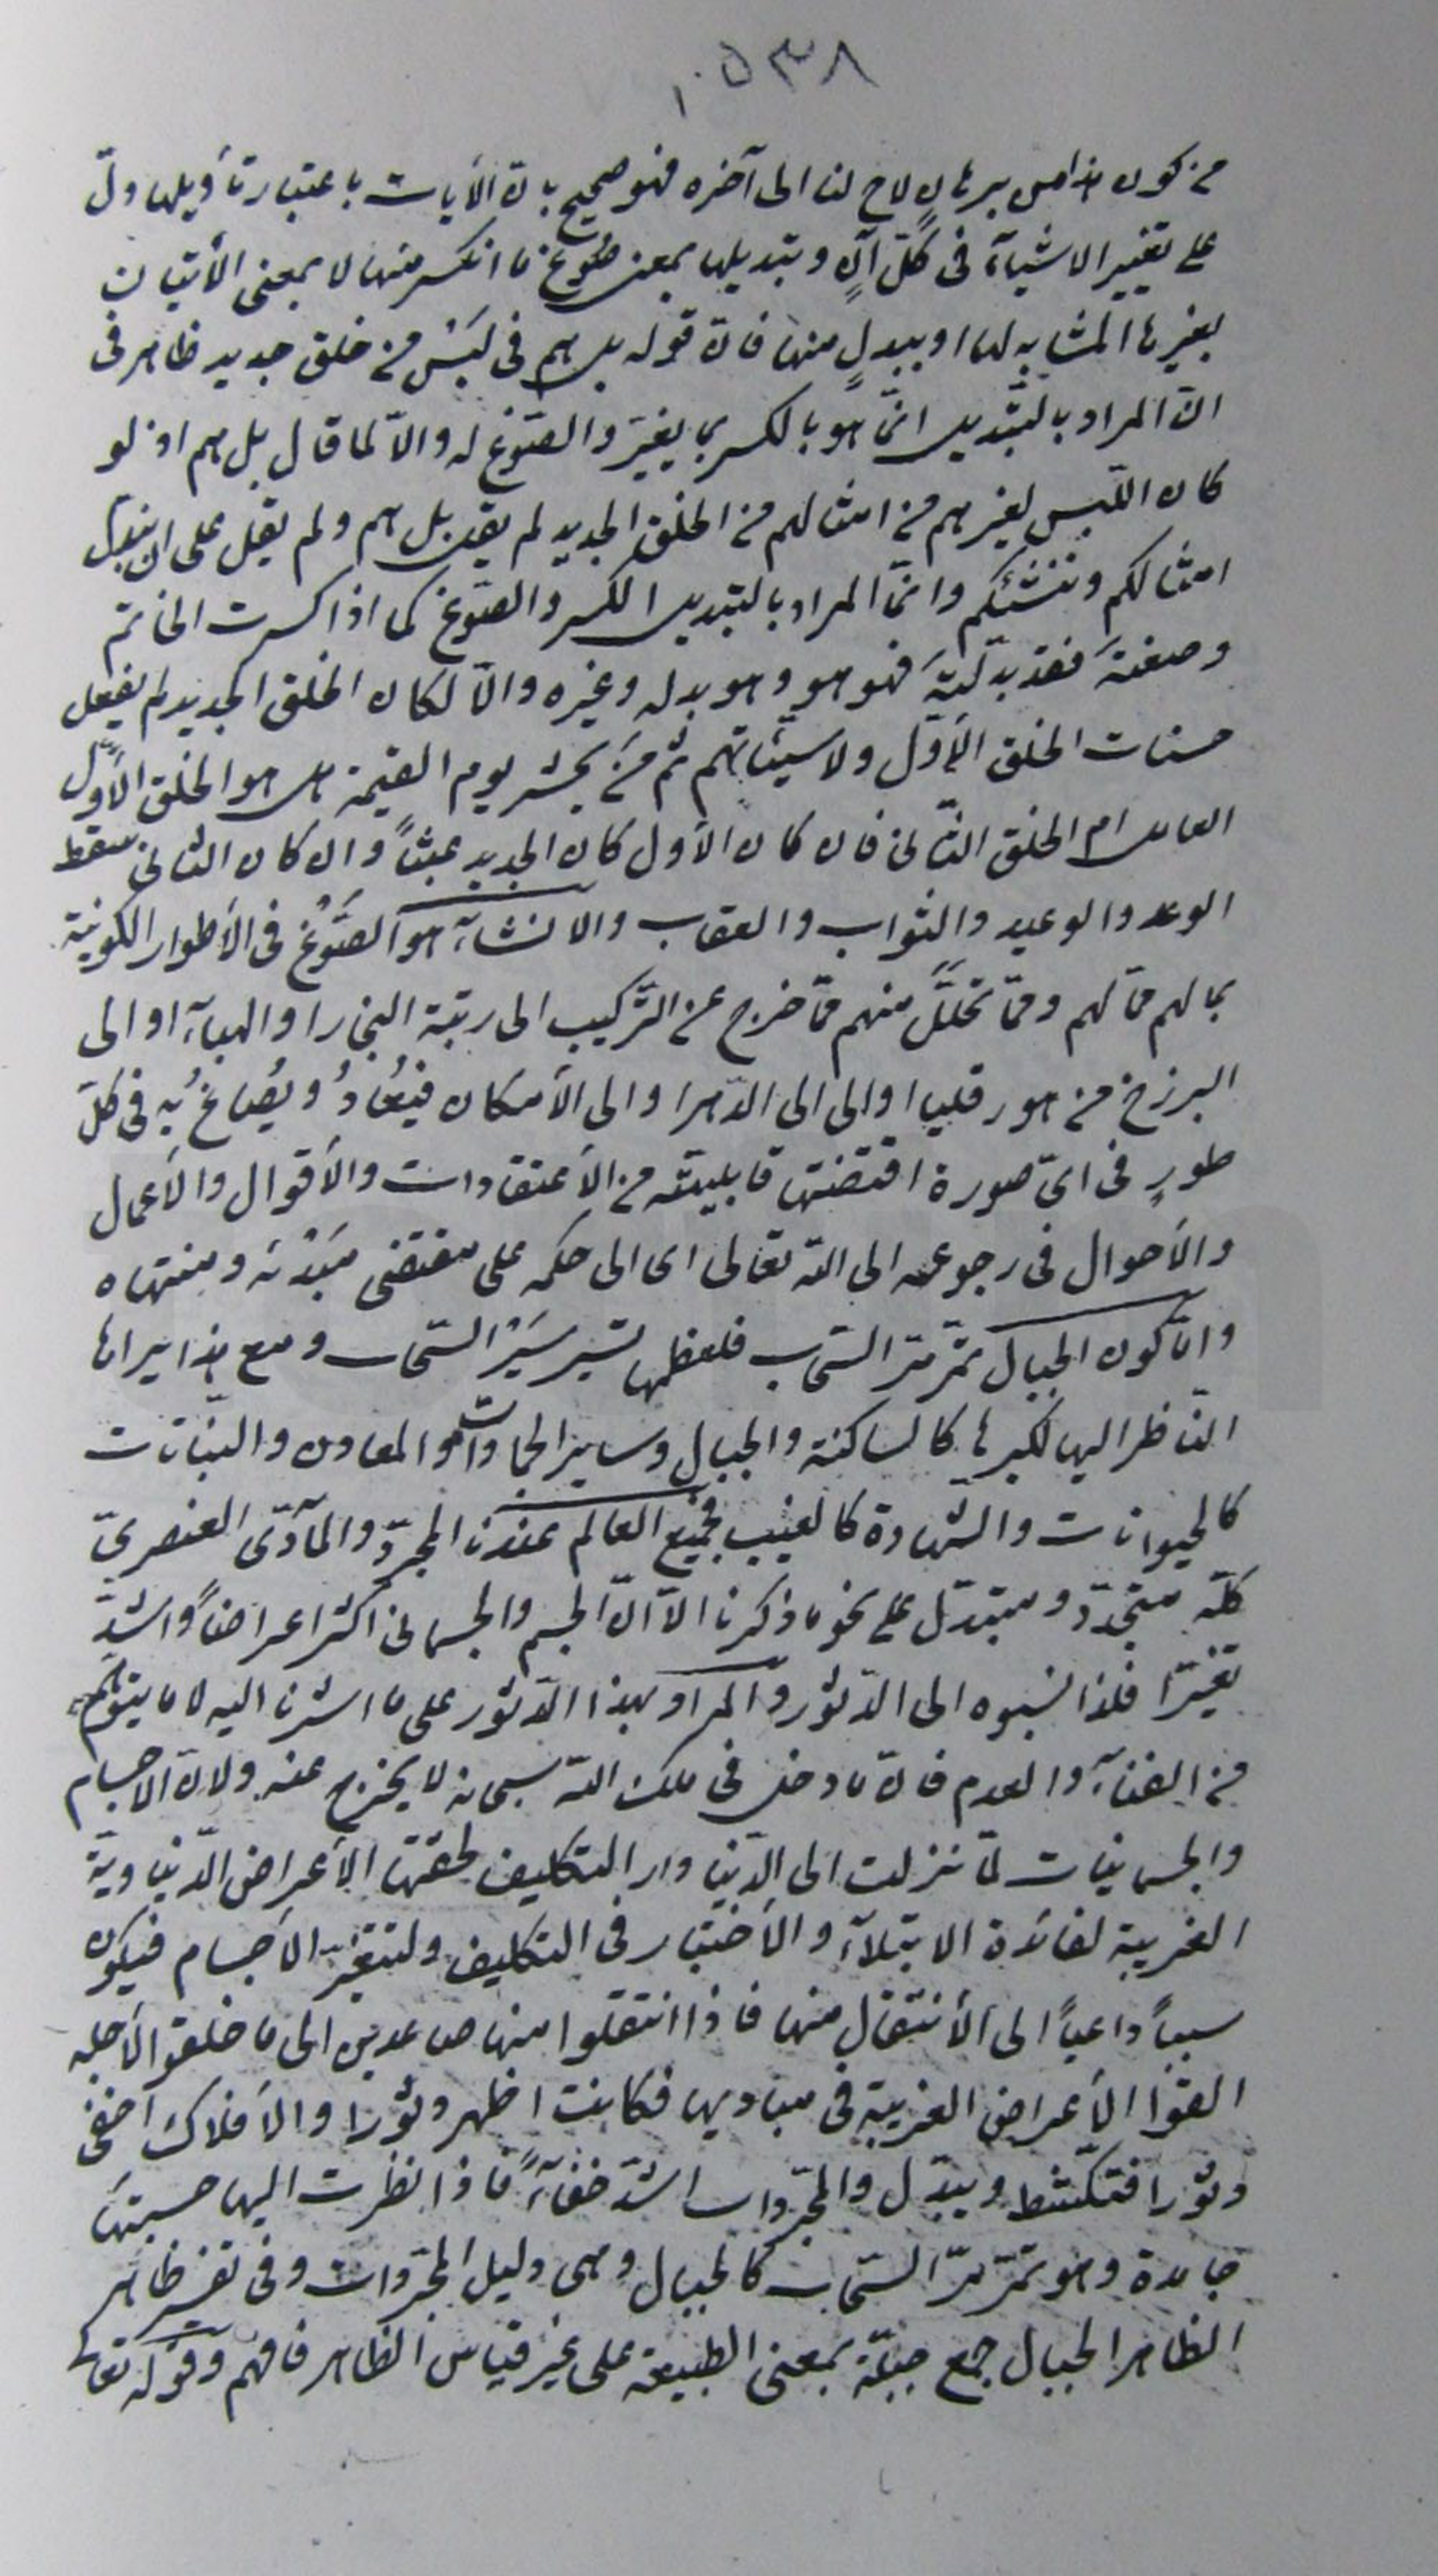 ٥٣٨
من كون هذا من برهانٍ لاح لنا الى آخره فهو صحيح بانّ الأيات باعتبار تأويلها دلّ
على تغيير الاشيآء فى كلّ آنٍ وتبديلها بمعنى صَوْغ ما انكسر منها لا بمعنى الأتيان
بغيرها المشابه لها او ببدلٍ منها فانّ قوله بل هم فى لَبْسٍ من خلق جديد ظاهر فى
انّ المراد بالتبديل انّما هو بالكسر بما يغيّر والصّوغ له والّا لما قال بل هم اذ لو
كان اللّبس لغيرهم من امثالهم من الخلق الجديد لم يقل بل هم ولم يقل على ان نبدّل
امثالكم وننشئكم وانّما المراد بالتبديل الكسر والصّوغ كما اذا كسرت الخاتم
وصغته فقد بدّلته فهو هو وهو بدله وغيره والّا لكان الخلق الجديد لم يفعل
حسنات الخلق الأوّل ولا سيّئاتهم ثم مَنْ يحشر يوم القيٰمة هل هو الخلق الأوّل
العامل ام الخلق الثّانى فان كان الأول كان الجديد عبثاً وان كان الثانى سقط
الوعد والوعيد والثواب والعقاب والانشآء هو الصَّوْغُ فى الأطوار الكونيّة
بما لهم ممّا لهم وممّا تحلَّلَ منهم ممّا خرج عن التّركيب الى رتبة البخار او الهبآء او الى
البرزخ من هورقليا او الى الى الدّهر او الى الأمكان فيُعَادُ ويُصَاغُ به فى كلّ
طورٍ فى اىّ صورة اقتضتها قابليته من الأعتقادات والأقوال والأعمال
والأحوال فى رجوعه الى اللّه تعالى اى الى حكمه على مقتضى مَبْدئه ومنتهاه
وامّا كون الجبال تمرّ مرّ السّحاب فلعظمها تسير سَيْرَ السّحاب ومع هذا يراها
النّاظر اليها لكبرها كالساكنة والجبال وساير الجمادات والمعادن والنّباتات
كالحيوانات والشّهادة كالغيب فجميع العالم عندنا المجرّد والمآدّى العنصرىّ
كلّه متجدّد ومتبدّل على نحو ما ذكرنا الّا انّ الجسم والجسمانى اكثر اعراضاً واشدّ
تغيّرا فلذا نسبوه الى الدّثور والمراد بهذا الدّثور على ما اشرنا اليه لا ما يتوهّم
من الفنآء والعدم فانّ ما دخل فى ملك اللّه سبحانه لا يخرج عنه ولانّ الاجسام
والجسمانيات لمّا نزلت الى الدّنيا دار التكليف لحقتها الأعراض الدّنياويّة
الغريبة لفائدة الابتلآء والأختبار فى التكليف ولتتغيّر الأجسام فيكون
سبباً داعياً الى الأنتقال منها فاذا انتقلوا منها صاعدين الى ما خلقوا لأجله
القوا الأعراض الغريبة فى مباديها فكانت اظهر دثورا والأفلاك اخفى
دثورا فتكشط ويبدّل والمجرّدات اشدّ خفآءً فاذا نظرت اليها حسبتها
جامدة وهو تمرّ مرّ السّحاب كالجبال وهى دليل المجرّدات وفى تفسير ظاهر
الظاهر الجبال جمع جبلّة بمعنى الطبيعة على غير قياس الظاهر فافهم وقوله تعالى